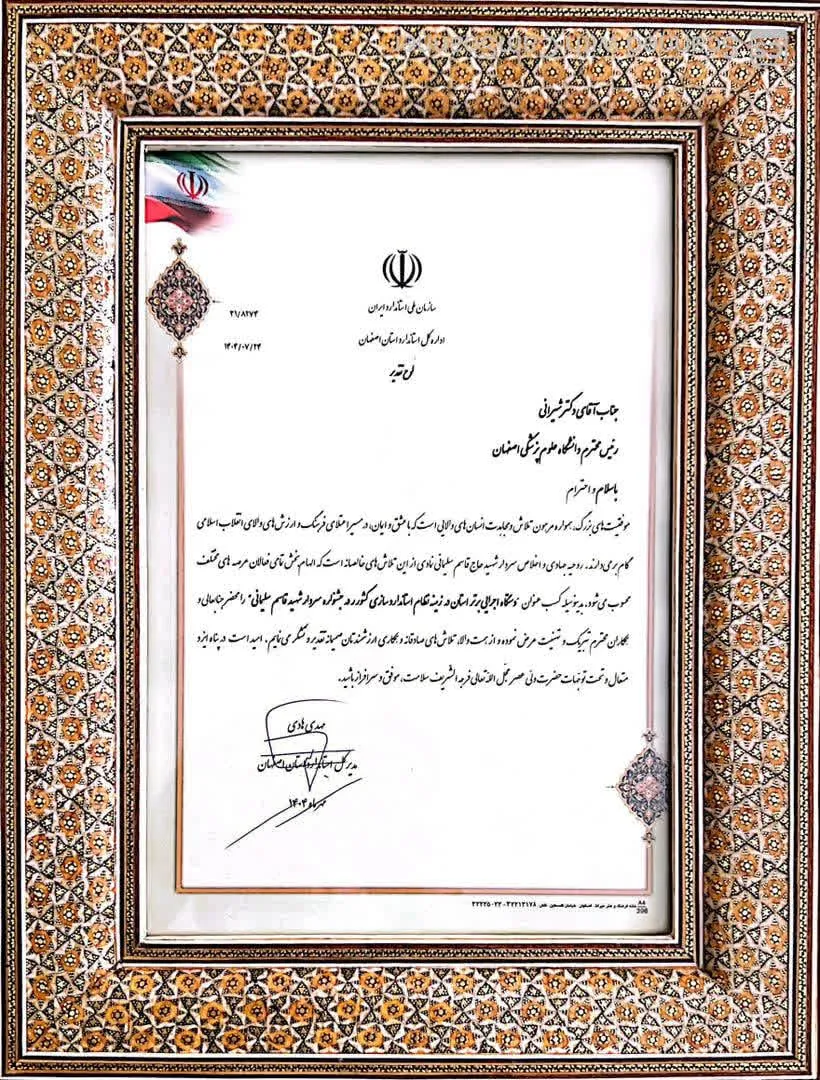 سازمان ملی استاندارد ایران
۳۱/۸۲۷۴
اداره کل استاندارد استان اصفهان
۱۴۰۴/۰۷/۲۴
لوح تقدیر
جناب آقای دکتر شیرانی
رئیس محترم دانشگاه علوم پزشکی اصفهان
باسلام و احترام
موفقیت‌های بزرگ، همواره مرهون تلاش و مجاهدت انسان‌های والایی است که با عشق و ایمان، در مسیر اعتلای فرهنگ و ارزش‌های والای انقلاب اسلامی
گام برمی‌دارند. روحیه جهادی و اخلاص سردار شهید حاج قاسم سلیمانی نمادی از این تلاش‌های خالصانه است که الهام‌بخش تمامی فعالان عرصه های مختلف
محسوب می‌شود. بدینوسیله کسب عنوان "دستگاه اجرایی برتر استان در زمینه نظام استانداردسازی کشور در جشنواره سردار شهید قاسم سلیمانی" را محضر جنابعالی و
همکاران محترم تبریک و تهنیت عرض نموده و از همت والا، تلاش‌های صادقانه و همکاری ارزشمندتان صمیمانه تقدیر و تشکر می‌نمایم. امید است در پناه ایزد
متعال و تحت توجهات حضرت ولی عصر عجل الله تعالی فرجه الشریف سلامت، موفق و سرافراز باشید.
مهدی هادی
مدیرکل استاندارد استان اصفهان
مهرماه ۱۴۰۴
خانه فرهنگ و هنر میراث اصفهان خیابان فلسطین تلفن ۳۲۲۱۲۱۷۸ - ۳۲۲۲۵۰۲۲
A4
398